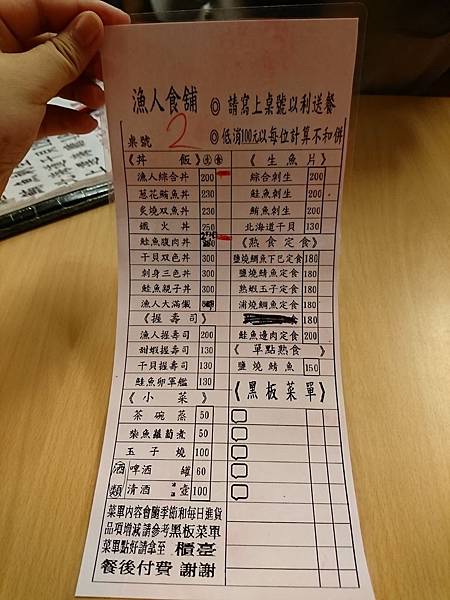 漁人食舖 ◎ 請寫上桌號以利送餐
桌號 2 ◎低消100元以每位計算不和併
《丼 飯》
漁人綜合丼 200
葱花鮪魚丼 230
炙燒双魚丼 230
鐵火丼 250
鮭魚腹肉丼
干貝双色丼 300
刺身三色丼 300
鮭魚親子丼 300
漁人大滿儎
《握壽司》
漁人握壽司 200
甜蝦握壽司 130
干貝握壽司 130
鮭魚卵軍艦 130
《小 菜》
茶碗蒸 50
柴魚蘿蔔煮 50
玉子燒 100
酒類
啤酒 罐 60
清酒 冰溫 壺 100
菜單內容會隨季節和每日進貨
品項增減請參考黑板菜單
菜單點好請拿至 櫃臺
餐後付費 謝謝
《生魚片》
綜合刺生 200
鮭魚刺生 200
鮪魚刺生 200
北海道干貝 130
《熟食定食》
鹽燒鯛魚下巴定食 180
鹽燒鯖魚定食 180
熟蝦玉子定食 180
浦燒鯛魚定食 180
180
鮭魚邊肉定食 200
《單點熟食》
鹽燒鯖魚 150
《黑板菜單》